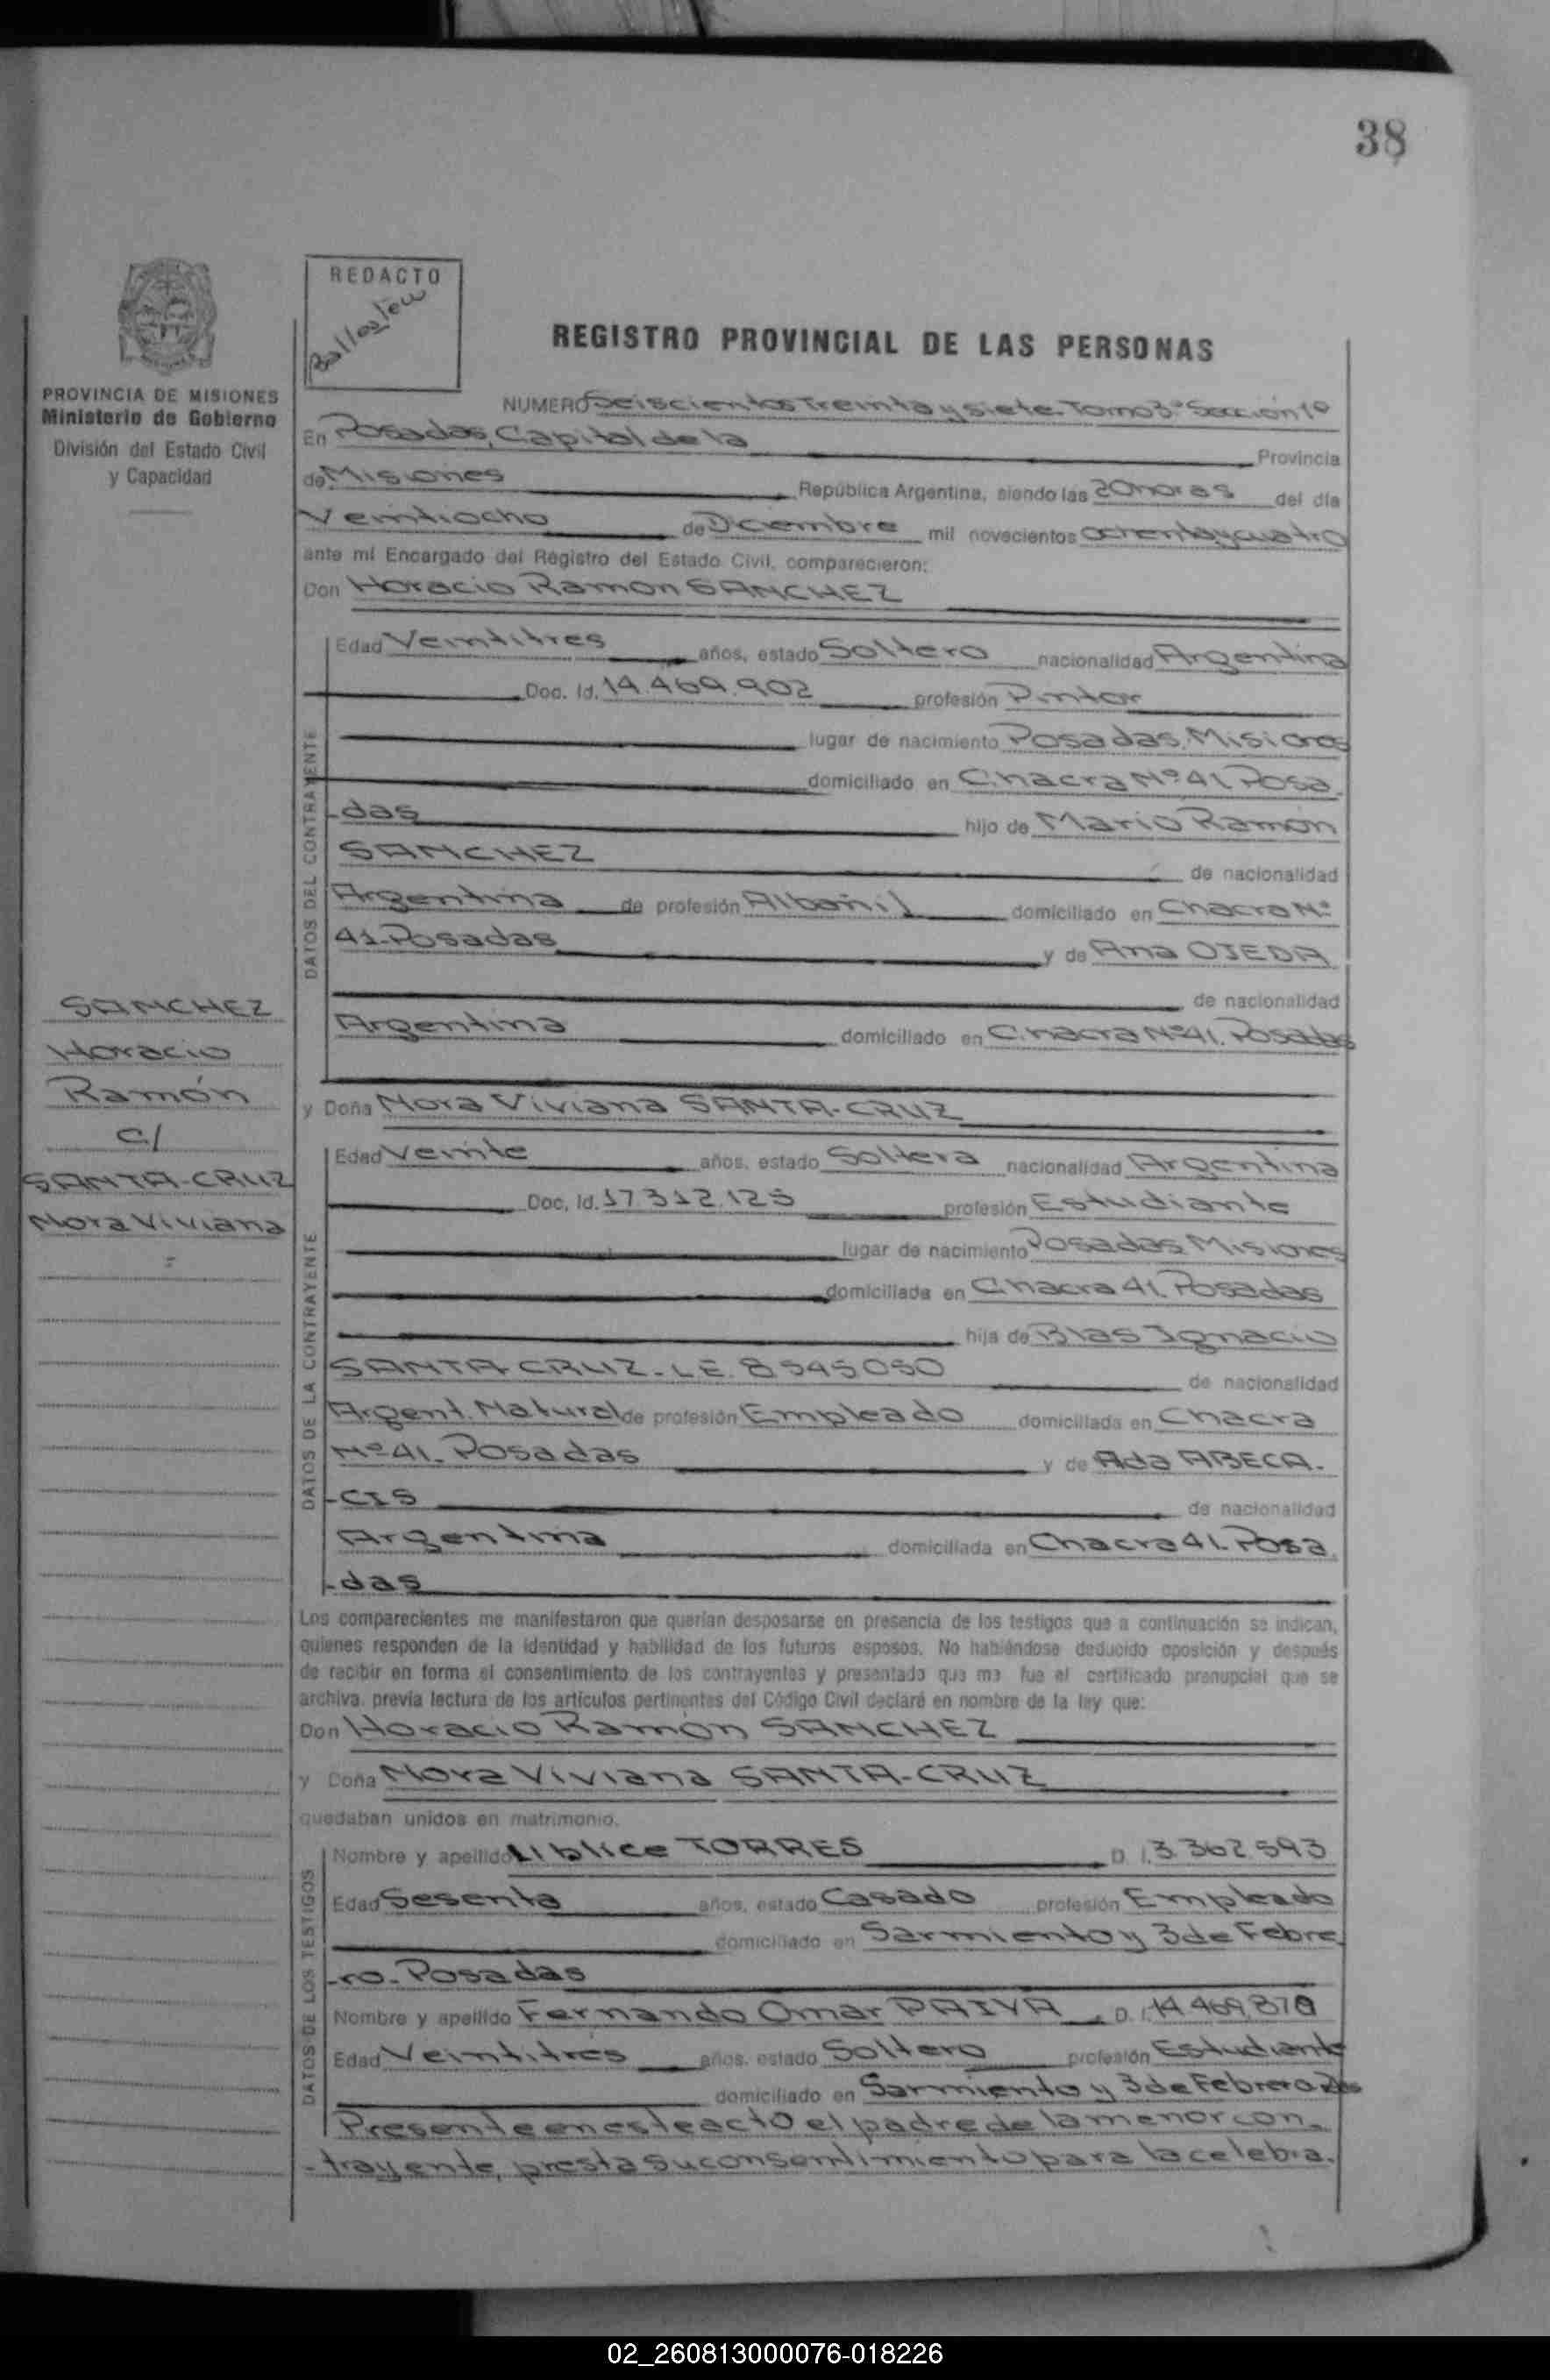 38
REDACTO
REGISTRO PROVINCIAL DE LAS PERSONAS
PROVINCIA DE MISIONES
Ministerio de Gobierno
División del Estado Civil
y Capacidad
NUMERO Seiscientos Treinta y siete Tomo 3º Sección 1º
En Posadas, Capital de la Provincia
de Misiones República Argentina, siendo las 20 horas del día
Veintiocho de Diciembre mil novecientos ochenta y cuatro
ante mí Encargado del Registro del Estado Civil, comparecieron:
Don Horacio Ramon SANCHEZ
DATOS DEL CONTRAYENTE
Edad Veintitres años, estado Soltero nacionalidad Argentina
Doc. Id. 14.469.902 profesión Pintor
lugar de nacimiento Posadas, Misiones
domiciliado en Chacra Nº 41, Posa
-das hijo de Mario Ramón
SANCHEZ de nacionalidad
Argentina de profesión Albañil domiciliado en Chacra Nº
41-Posadas y de Ana OJEDA
de nacionalidad
Argentina domiciliado en Chacra Nº 41. Posadas
SANCHEZ
Horacio
Ramón
c/
SANTA-CRUZ
Nora Viviana
=
y Doña Nora Viviana SANTA-CRUZ
DATOS DE LA CONTRAYENTE
Edad Veinte años, estado Soltera nacionalidad Argentina
Doc. Id. 17.312.125 profesión Estudiante
lugar de nacimiento Posadas Misiones
domiciliada en Chacra 41. Posadas
hija de Blas Ignacio
SANTA CRUZ - L.E. 8545050 de nacionalidad
Argent. Natural de profesión Empleado domiciliada en Chacra
Nº 41. Posadas y de Ada ABECA-
-CIS de nacionalidad
Argentina domiciliada en Chacra 41. Posa
-das
Los comparecientes me manifestaron que querían desposarse en presencia de los testigos que a continuación se indican,
quienes responden de la identidad y habilidad de los futuros esposos. No habiéndose deducido oposición y después
de recibir en forma el consentimiento de los contrayentes y presentado que me fue el certificado prenupcial que se
archiva, previa lectura de los artículos pertinentes del Código Civil declaré en nombre de la ley que:
Don Horacio Ramón SANCHEZ
y Doña Nora Viviana SANTA-CRUZ
quedaban unidos en matrimonio.
DATOS DE LOS TESTIGOS
Nombre y apellido TORRES D. I. 3.362.593
Edad Sesenta años, estado Casado profesión Empleado
domiciliado en Sarmiento y 3 de Febre
-ro. Posadas
Nombre y apellido Fernando Omar PAIVA D. I. 14.469.878
Edad Veintitrés años, estado Soltero profesión Estudiante
domiciliado en Sarmiento y 3 de Febrero
Presente en este acto el padre de la menor con-
-trayente, presta su consentimiento para la celebra-
02_260813000076-018226